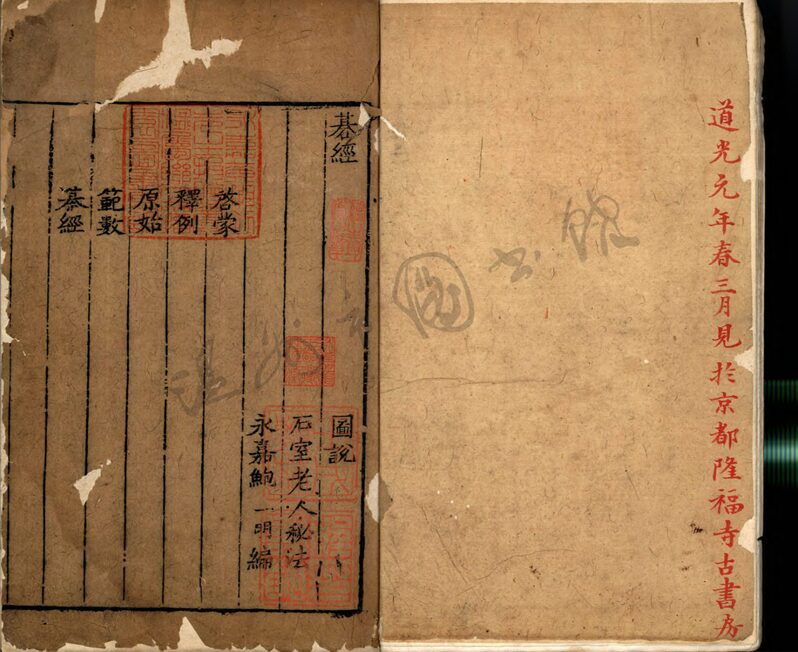 道光元年春三月見於京都隆福寺古書房
棊經
圖說
石室老人秘法
永嘉鮑一明編
啓蒙
釋例
原始
範數
棊經